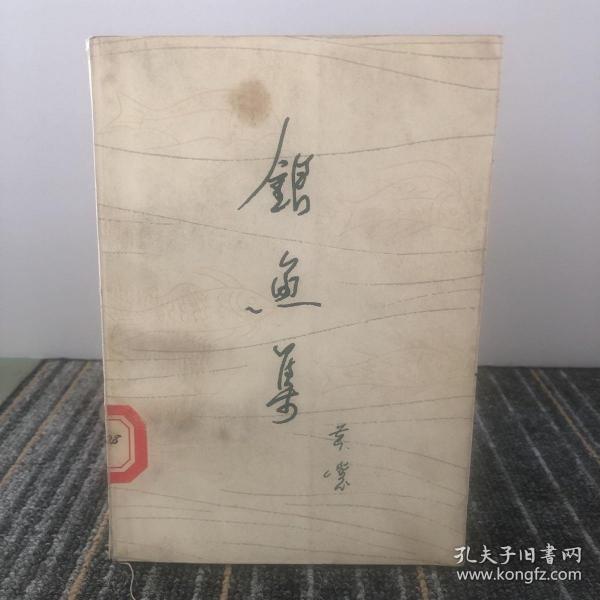 银鱼集
黄裳
05
孔夫子旧书网
www.kongfz.com